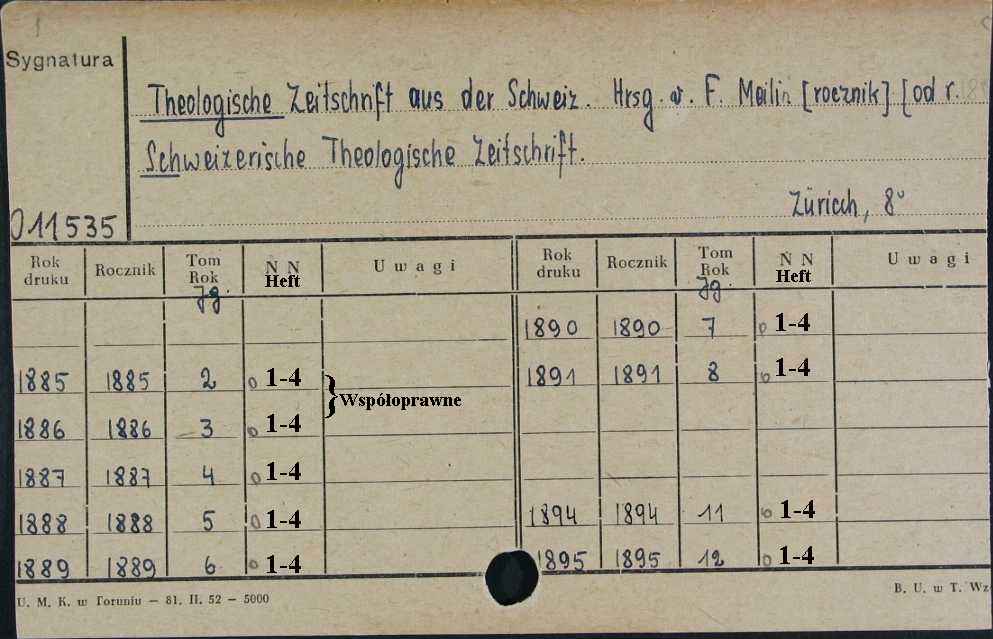 Sygnatura
Theologische Zeitschrift aus der Schweiz. Hrsg. v. F. Meilin [rocznik] [od r.
Schweizerische Theologische Zeitschrift.
Zürich, 8°
011535
Rok druku Rocznik Tom Rok Jg. N N Heft Uwagi Rok druku Rocznik Tom Rok Jg. N N Heft Uwagi
1890 1890 7 0 1-4
1885 1885 2 0 1-4 1891 1891 8 0 1-4
} Współoprawne
1886 1886 3 0 1-4
1887 1887 4 0 1-4
1888 1888 5 0 1-4 1894 1894 11 0 1-4
1889 1889 6 0 1-4 1895 1895 12 0 1-4
U. M. K. w Toruniu – 81. II. 52 – 5000
B. U. w T. Wz